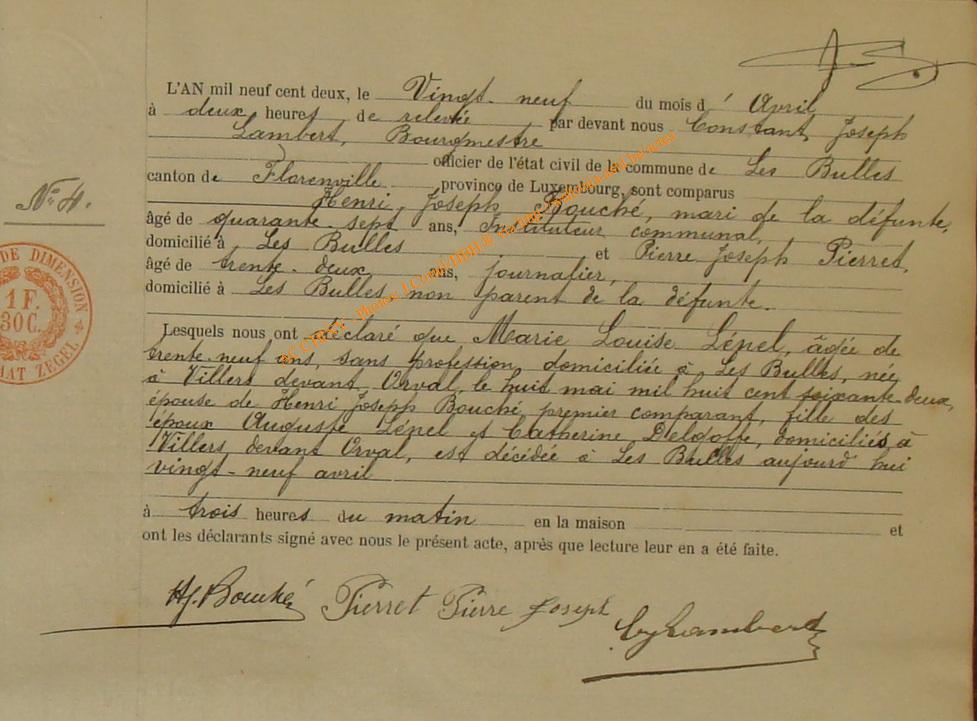 L'AN mil neuf cent deux, le Vingt-neuf du mois d' April
à deux heures de relevée par devant nous Constant, Joseph
Lambert, Bourgmestre
officier de l'état civil de la commune de Les Bulles
canton de Florenville province de Luxembourg, sont comparus
Henri, Joseph Bouché, mari de la défunte,
âgé de quarante sept ans, Instituteur communal,
domicilié à Les Bulles et Pierre Joseph Pierret,
âgé de trente-deux ans, journalier,
domicilié à Les Bulles non parent de la défunte.
N° 4.
DE DIMENSION
1 F.
30 C.
ZEGEL
Lesquels nous ont déclaré que Marie Louise Lépel, âgée de
trente-neuf ans, sans profession, domiciliée à Les Bulles, née
à Villers devant Orval, le huit mai mil huit cent soixante-deux,
épouse de Henri Joseph Bouché, premier comparant, fille des
époux Auguste Lépel et Catherine Deldoffe, domiciliés à
Villers devant Orval, est décédée à Les Bulles aujourd'hui
vingt-neuf avril
à trois heures du matin en la maison et
ont les déclarants signé avec nous le présent acte, après que lecture leur en a été faite.
Hj. Bouché Pierret Pierre Joseph
Cj Lambert